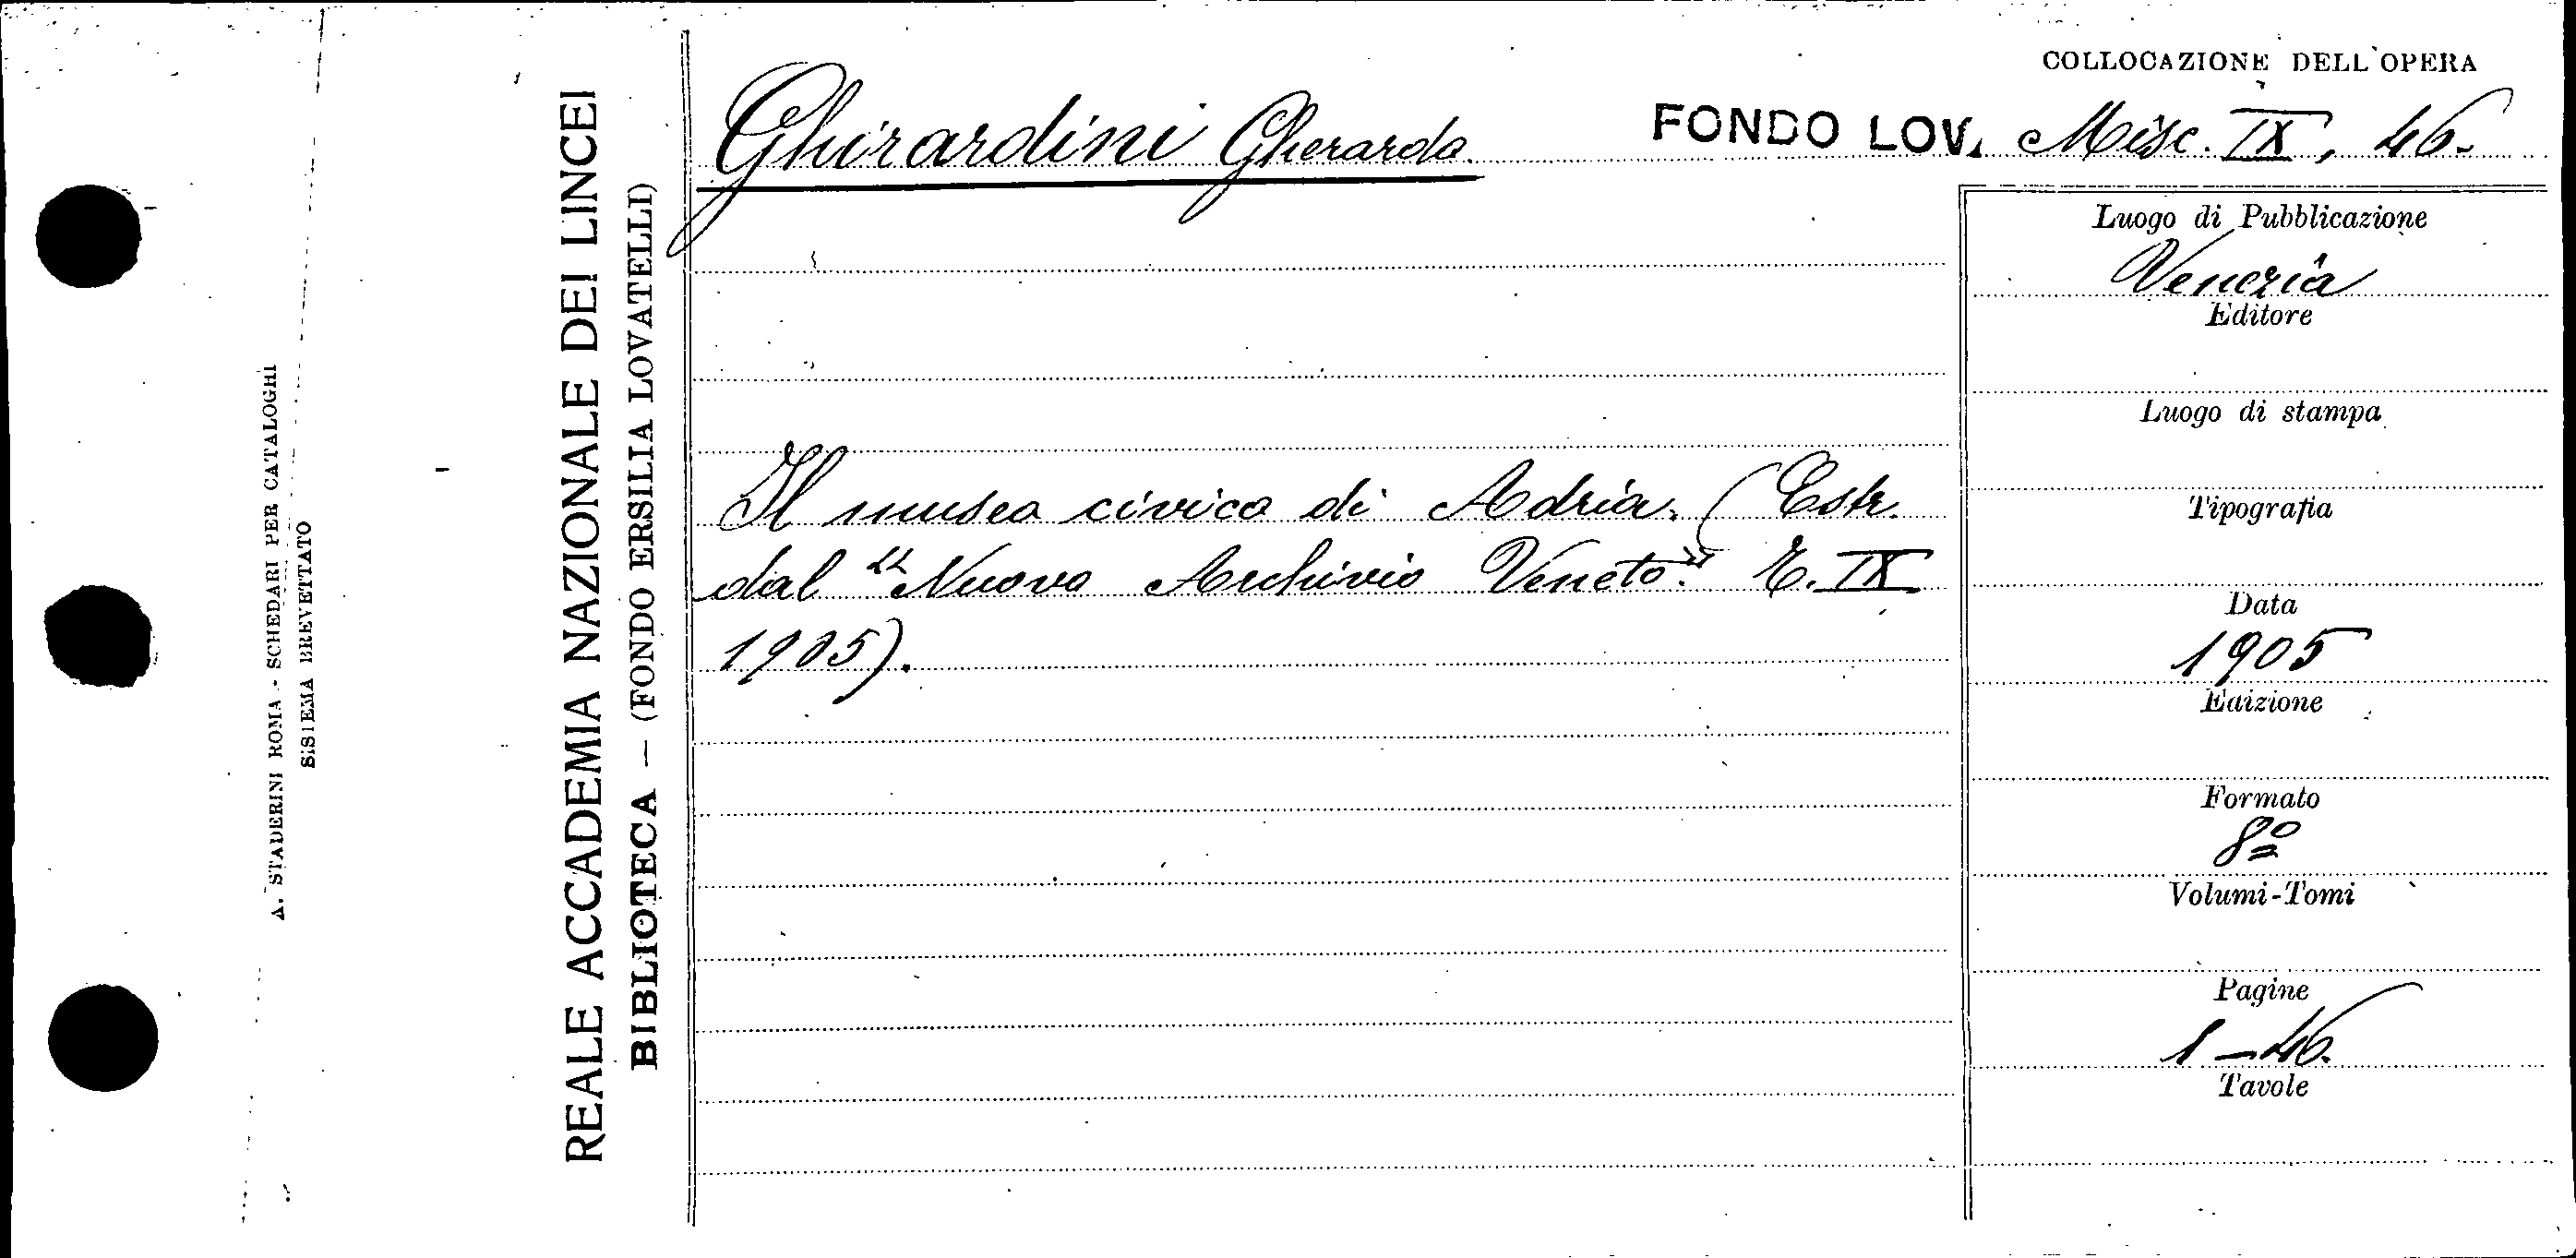 A. STADERINI ROMA - SCHEDARI PER CATALOGHI
SISTEMA BREVETTATO
REALE ACCADEMIA NAZIONALE DEI LINCEI
BIBLIOTECA — (FONDO ERSILIA LOVATELLI)
COLLOCAZIONE DELL'OPERA
Ghirardini Gherardo.
FONDO LOV. Misc. IX, 46.
Il museo civico di Adria. (Estr.
dal "Nuovo Archivio Veneto". T. IX
1905).
Luogo di Pubblicazione
Venezia
Editore
Luogo di stampa
Tipografia
Data
1905
Edizione
Formato
8º
Volumi-Tomi
Pagine
1-46.
Tavole